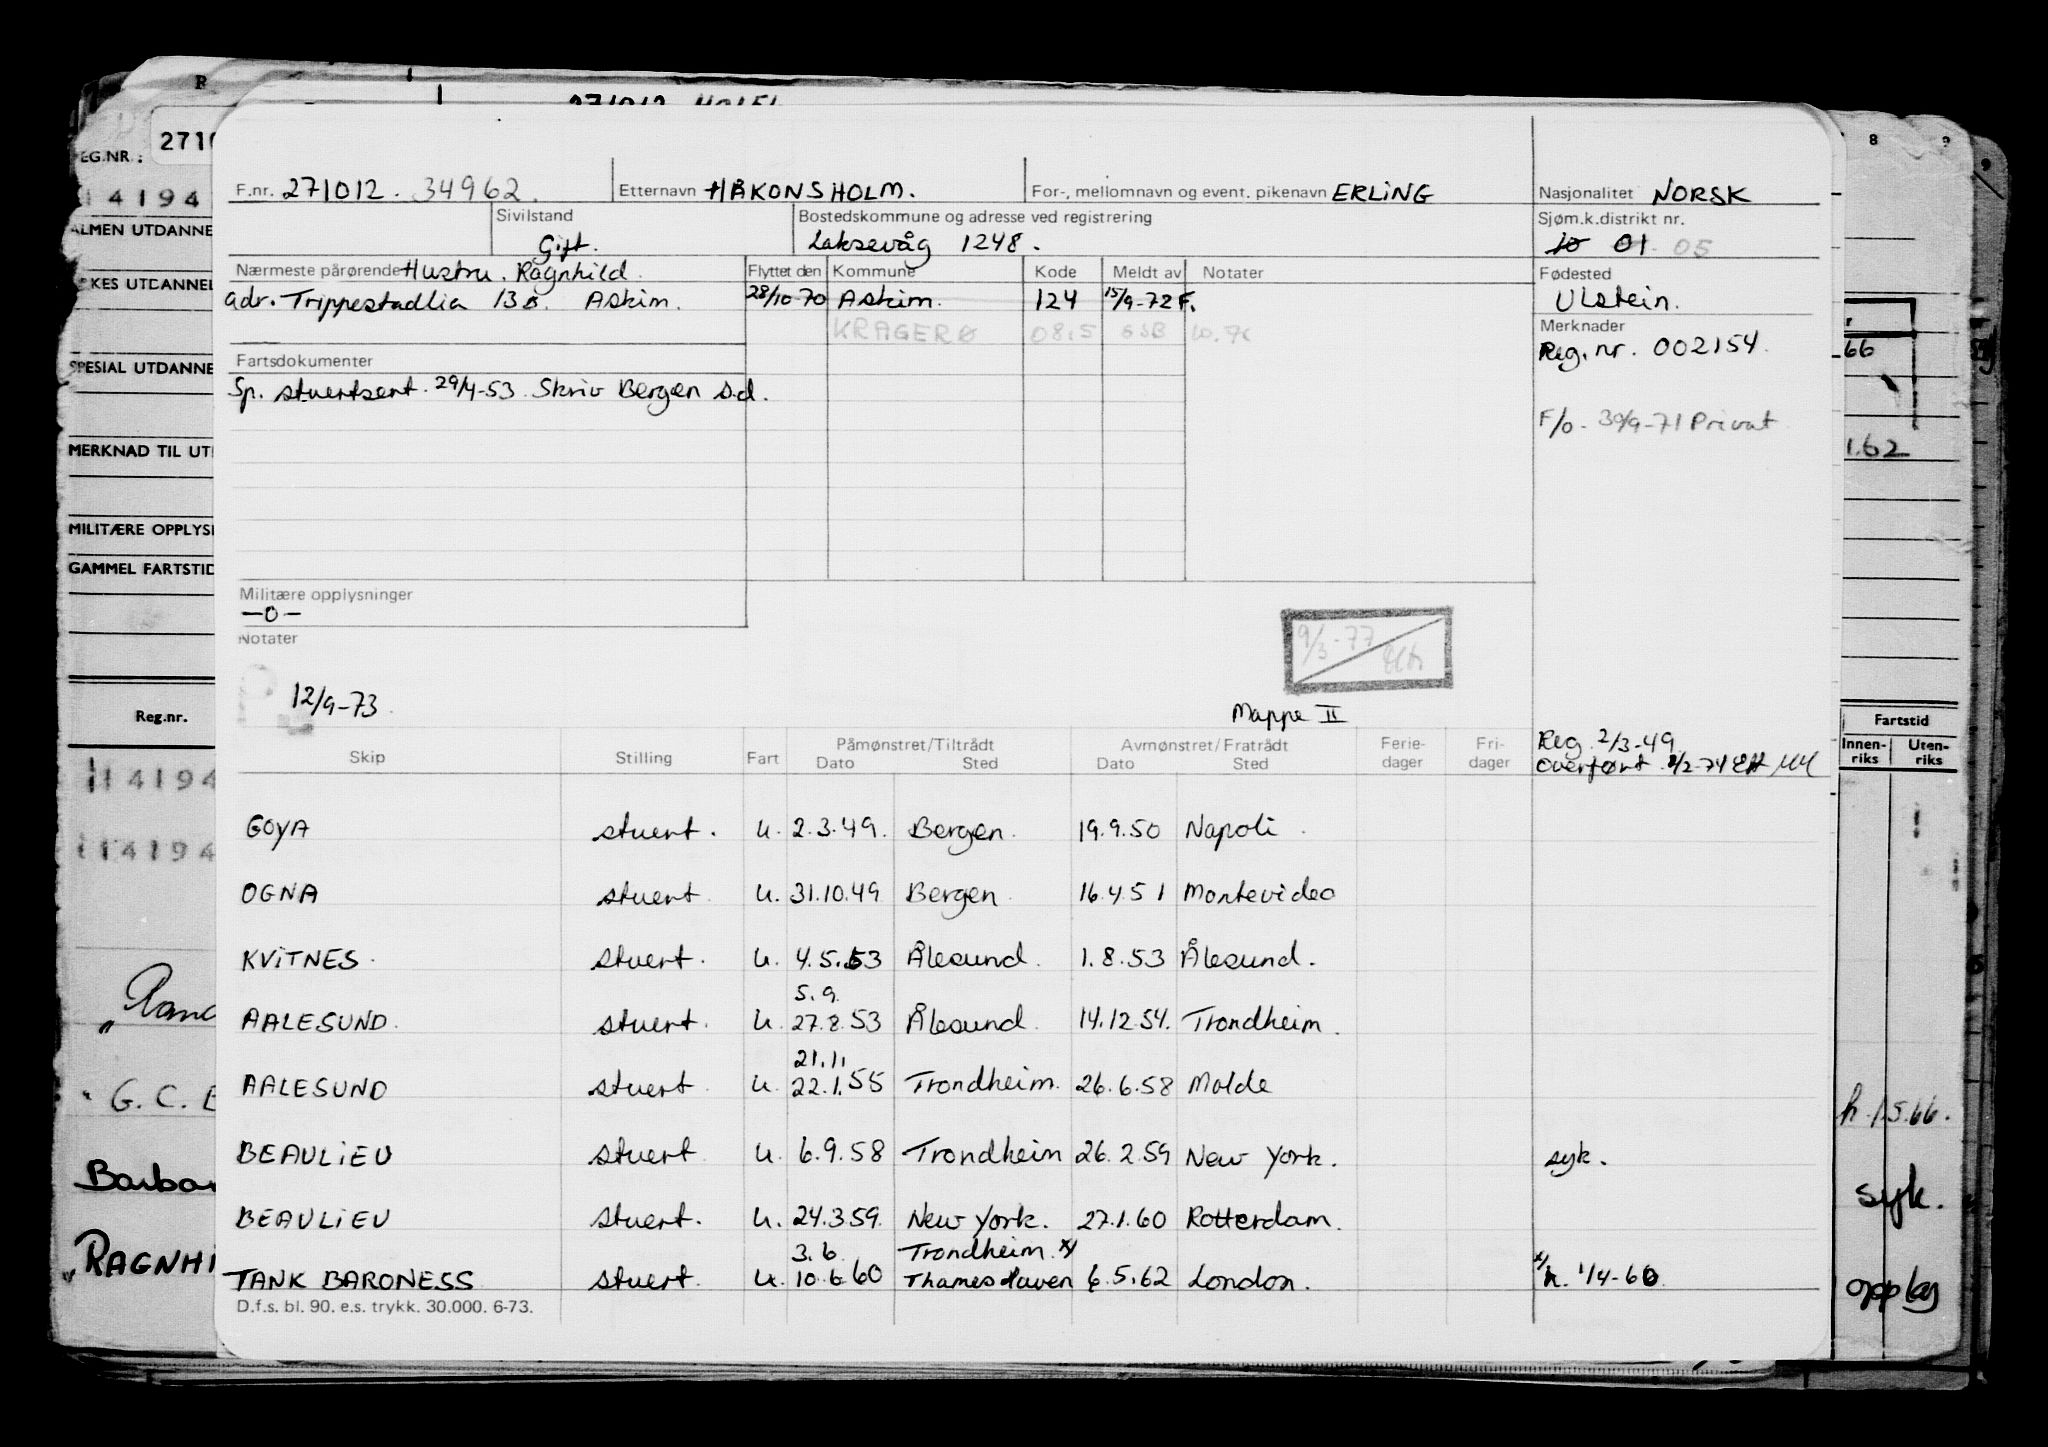 R
271012 HOLEL
EG.NR.: 2710
14194
ALMEN UTDANNE
KES UTDANNEL
SPESIAL UTDANNE
MERKNAD TIL UT
MILITÆRE OPPLYS
GAMMEL FARTSTID
Reg.nr.
14194
14194
G. C. E
Barbar
RAGNHI
F.nr. 271012. 34962. Etternavn HÅKONSHOLM. For-, mellomnavn og event. pikenavn ERLING Nasjonalitet NORSK
Sivilstand Bostedskommune og adresse ved registrering Sjøm.k.distrikt nr.
Gift. Laksevåg 1248. 10 01 05
Nærmeste pårørende Hustru. Ragnhild. Flyttet den Kommune Kode Meldt av Notater Fødested
adr. Trippestadlia 13 B. Askim. 28/10-70 Askim. 124 15/9-72 F. Ulstein.
KRAGERØ 0815 SSB 10.76 Merknader
Reg.nr. 002154.
Fartsdokumenter
Sp. stuertsert. 29/4-53. Skriv Bergen s.d.
F/o - 30/9-71 Privat
Militære opplysninger
—0—
Notater
9/3-77
12/9-73
Mappe II
Reg. 2/3-49
Overført
Skip Stilling Fart Påmønstret/Tiltrådt Dato Sted Avmønstret/Fratrådt Dato Sted Ferie-dager Fri-dager
GOYA stuert. u. 2.3.49. Bergen. 19.9.50 Napoli
OGNA stuert. u. 31.10.49 Bergen 16.4.51 Montevideo
KVITNES. stuert. u. 4.5.53 Ålesund. 1.8.53 Ålesund.
5.9.
AALESUND. stuert. u. 27.8.53 Ålesund. 14.12.54. Trondheim.
21.11.
AALESUND stuert. u. 22.1.55 Trondheim. 26.6.58 Molde
BEAULIEU stuert u. 6.9.58 Trondheim 26.2.59 New York. syk.
BEAULIEU stuert. u. 24.3.59. New York. 27.1.60 Rotterdam.
3.6. Trondheim. x/
TANK BARONESS stuert. u. 10.6.60 Thameshaven 6.5.62 London. x/ h. 1/4-60.
D.f.s. bl. 90. e.s. trykk. 30.000. 6-73.
8 9
66
1.62
Fartstid
Innen-riks Uten-riks
h. 1.5.66.
syk.
opplag